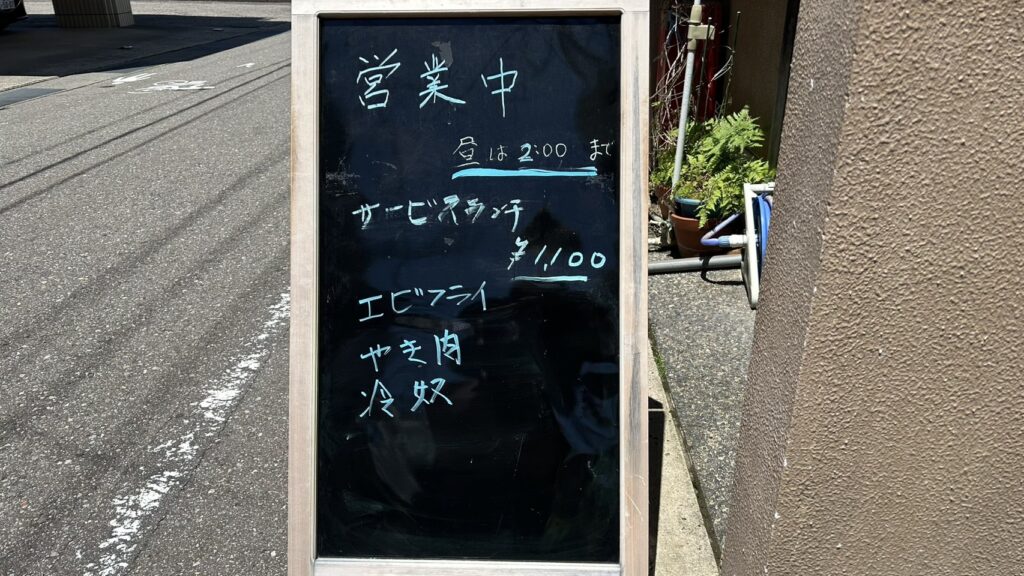 営業中
昼は2:00まで
サービスランチ
¥1,100
エビフライ
やき肉
冷奴